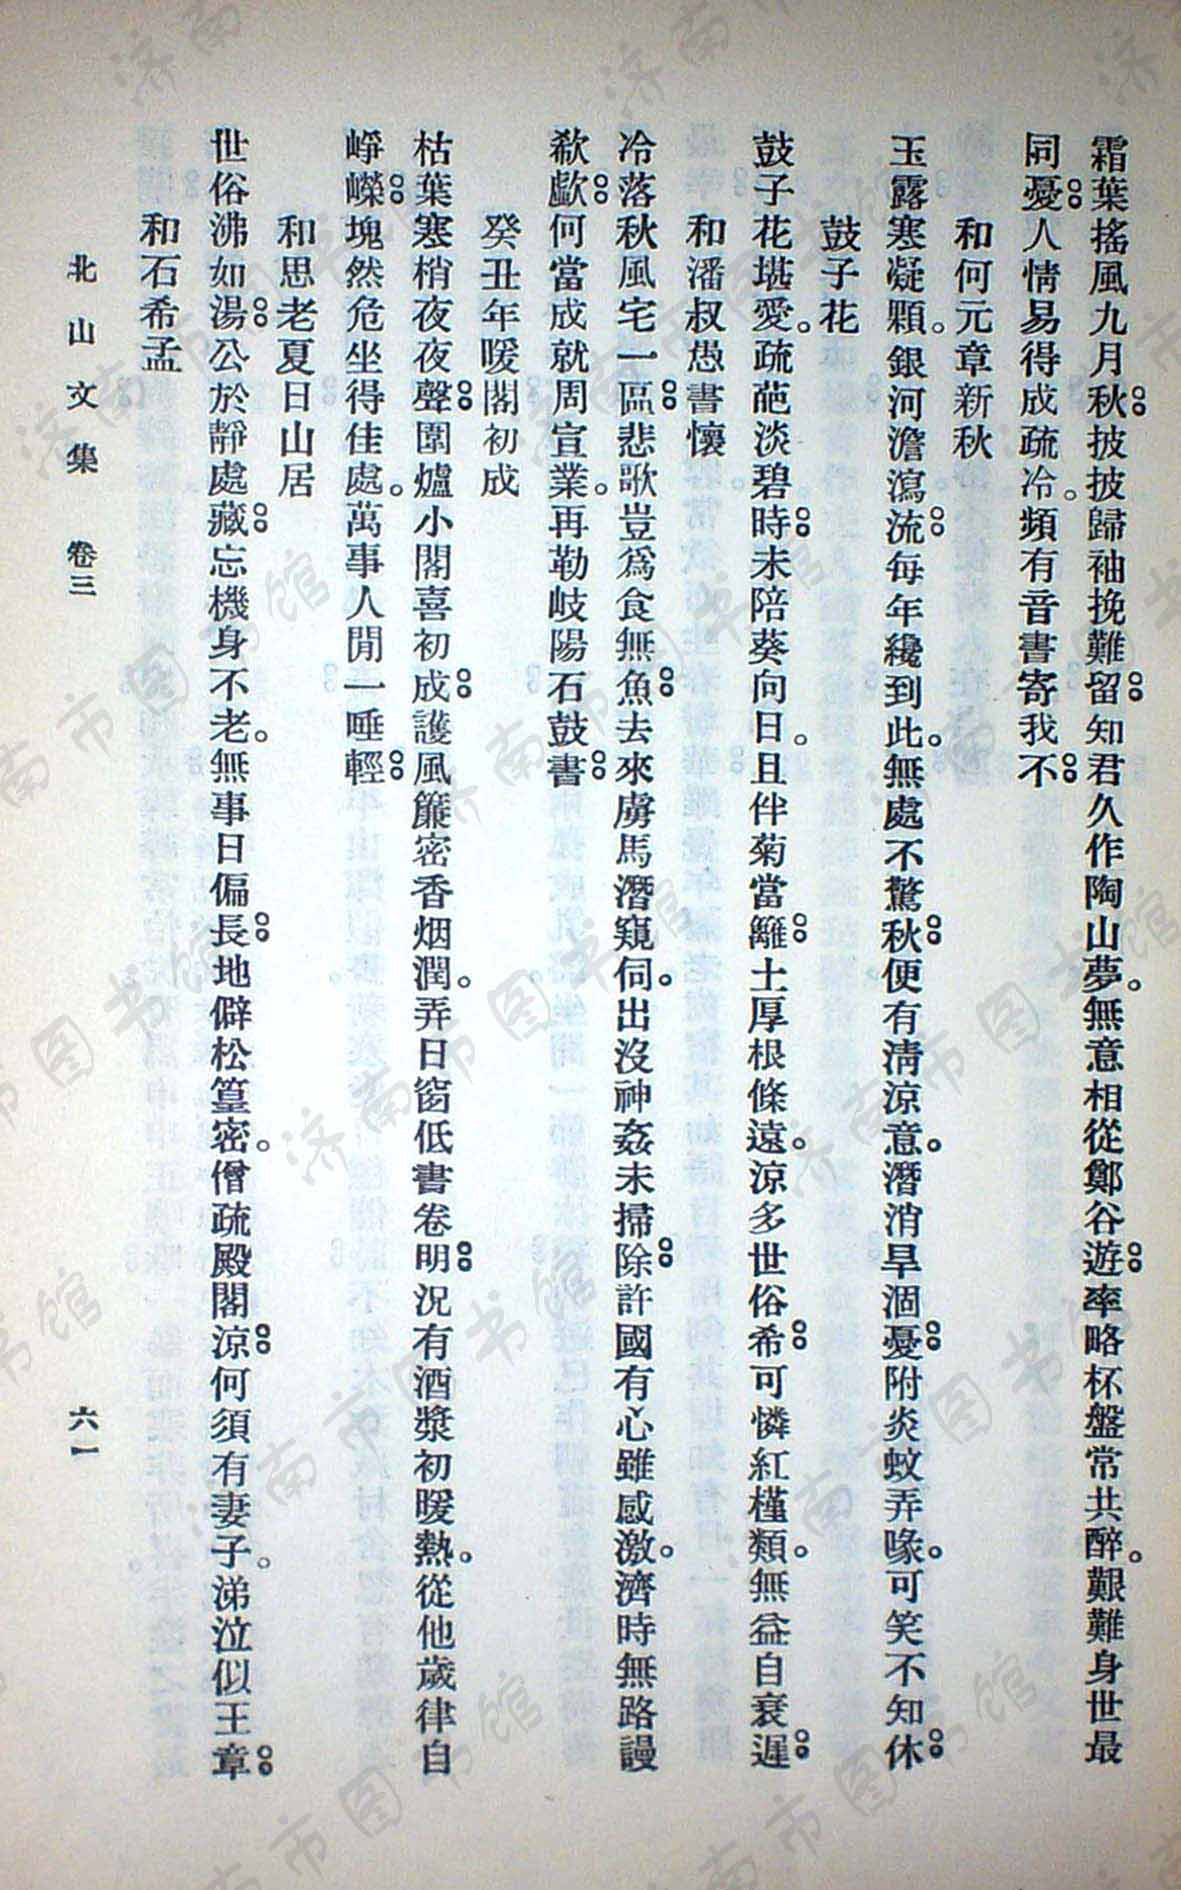 霜葉搖風九月秋披披歸袖挽難留知君久作陶山夢。無意相從鄭谷遊率略杯盤常共醉。艱難身世最
同憂人情易得成疏冷。頻有音書寄我不
和何元章新秋
玉露寒凝顆。銀河澹瀉流每年纔到此。無處不驚秋便有淸涼意。潛消旱涸憂附炎蚊弄喙。可笑不知休
鼓子花
鼓子花堪愛。疏葩淡碧時未陪葵向日。且伴菊當籬土厚根條遠。涼多世俗希可憐紅槿類。無益自衰遲
和潘叔愚書懷
冷落秋風宅一區悲歌豈爲食無魚去來虜馬潛窺伺。出沒神姦未掃除許國有心雖感激。濟時無路謾
欷歔何當成就周宣業。再勒岐陽石鼓書
癸丑年暖閣初成
枯葉寒梢夜夜聲圍爐小閣喜初成護風簾密香烟潤。弄日窗低書卷明況有酒漿初暖熱。從他歲律自
崢嶸塊然危坐得佳處。萬事人閒一唾輕
和思老夏日山居
世俗沸如湯公於靜處藏忘機身不老。無事日偏長地僻松篁密。僧疏殿閣涼何須有妻子。涕泣似王章
和石希孟
北山文集 卷三
六一
济南市图书馆